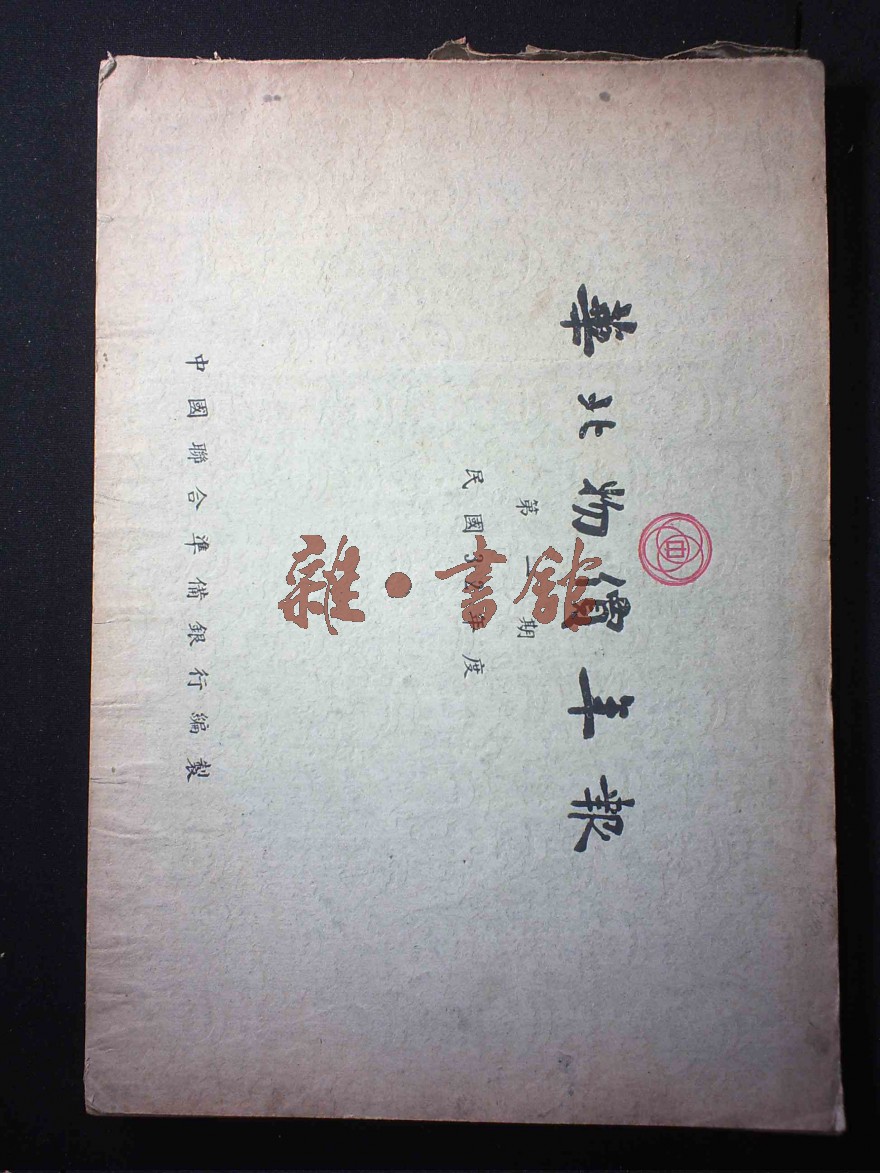 華北物價年報
第 期
民國 年度
中國聯合準備銀行編製
雜·書館